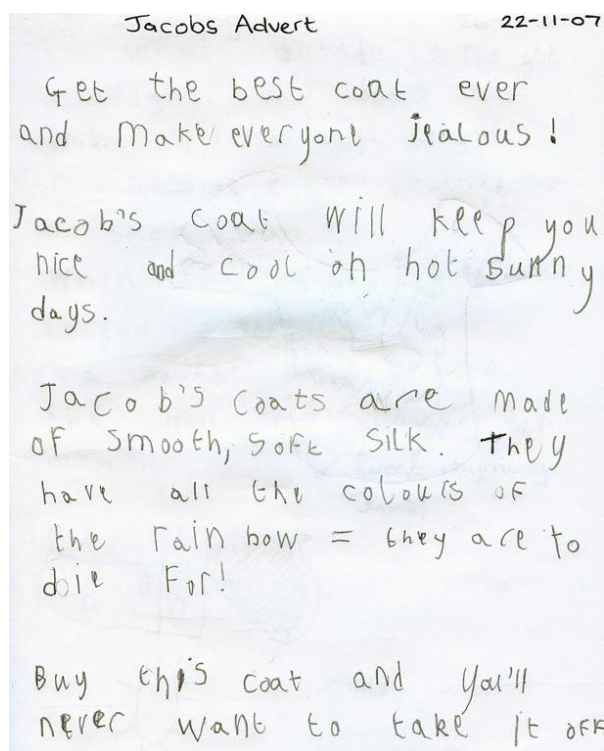 Jacobs Advert 22-11-07
Get the best coat ever
and make everyone jealous!
Jacob's coat will keep you
nice and cool on hot sunny
days.
Jacob's coats are made
of smooth, soft silk. They
have all the colours of
the rainbow = they are to
doie For!
Buy this coat and you'll
never want to take it off